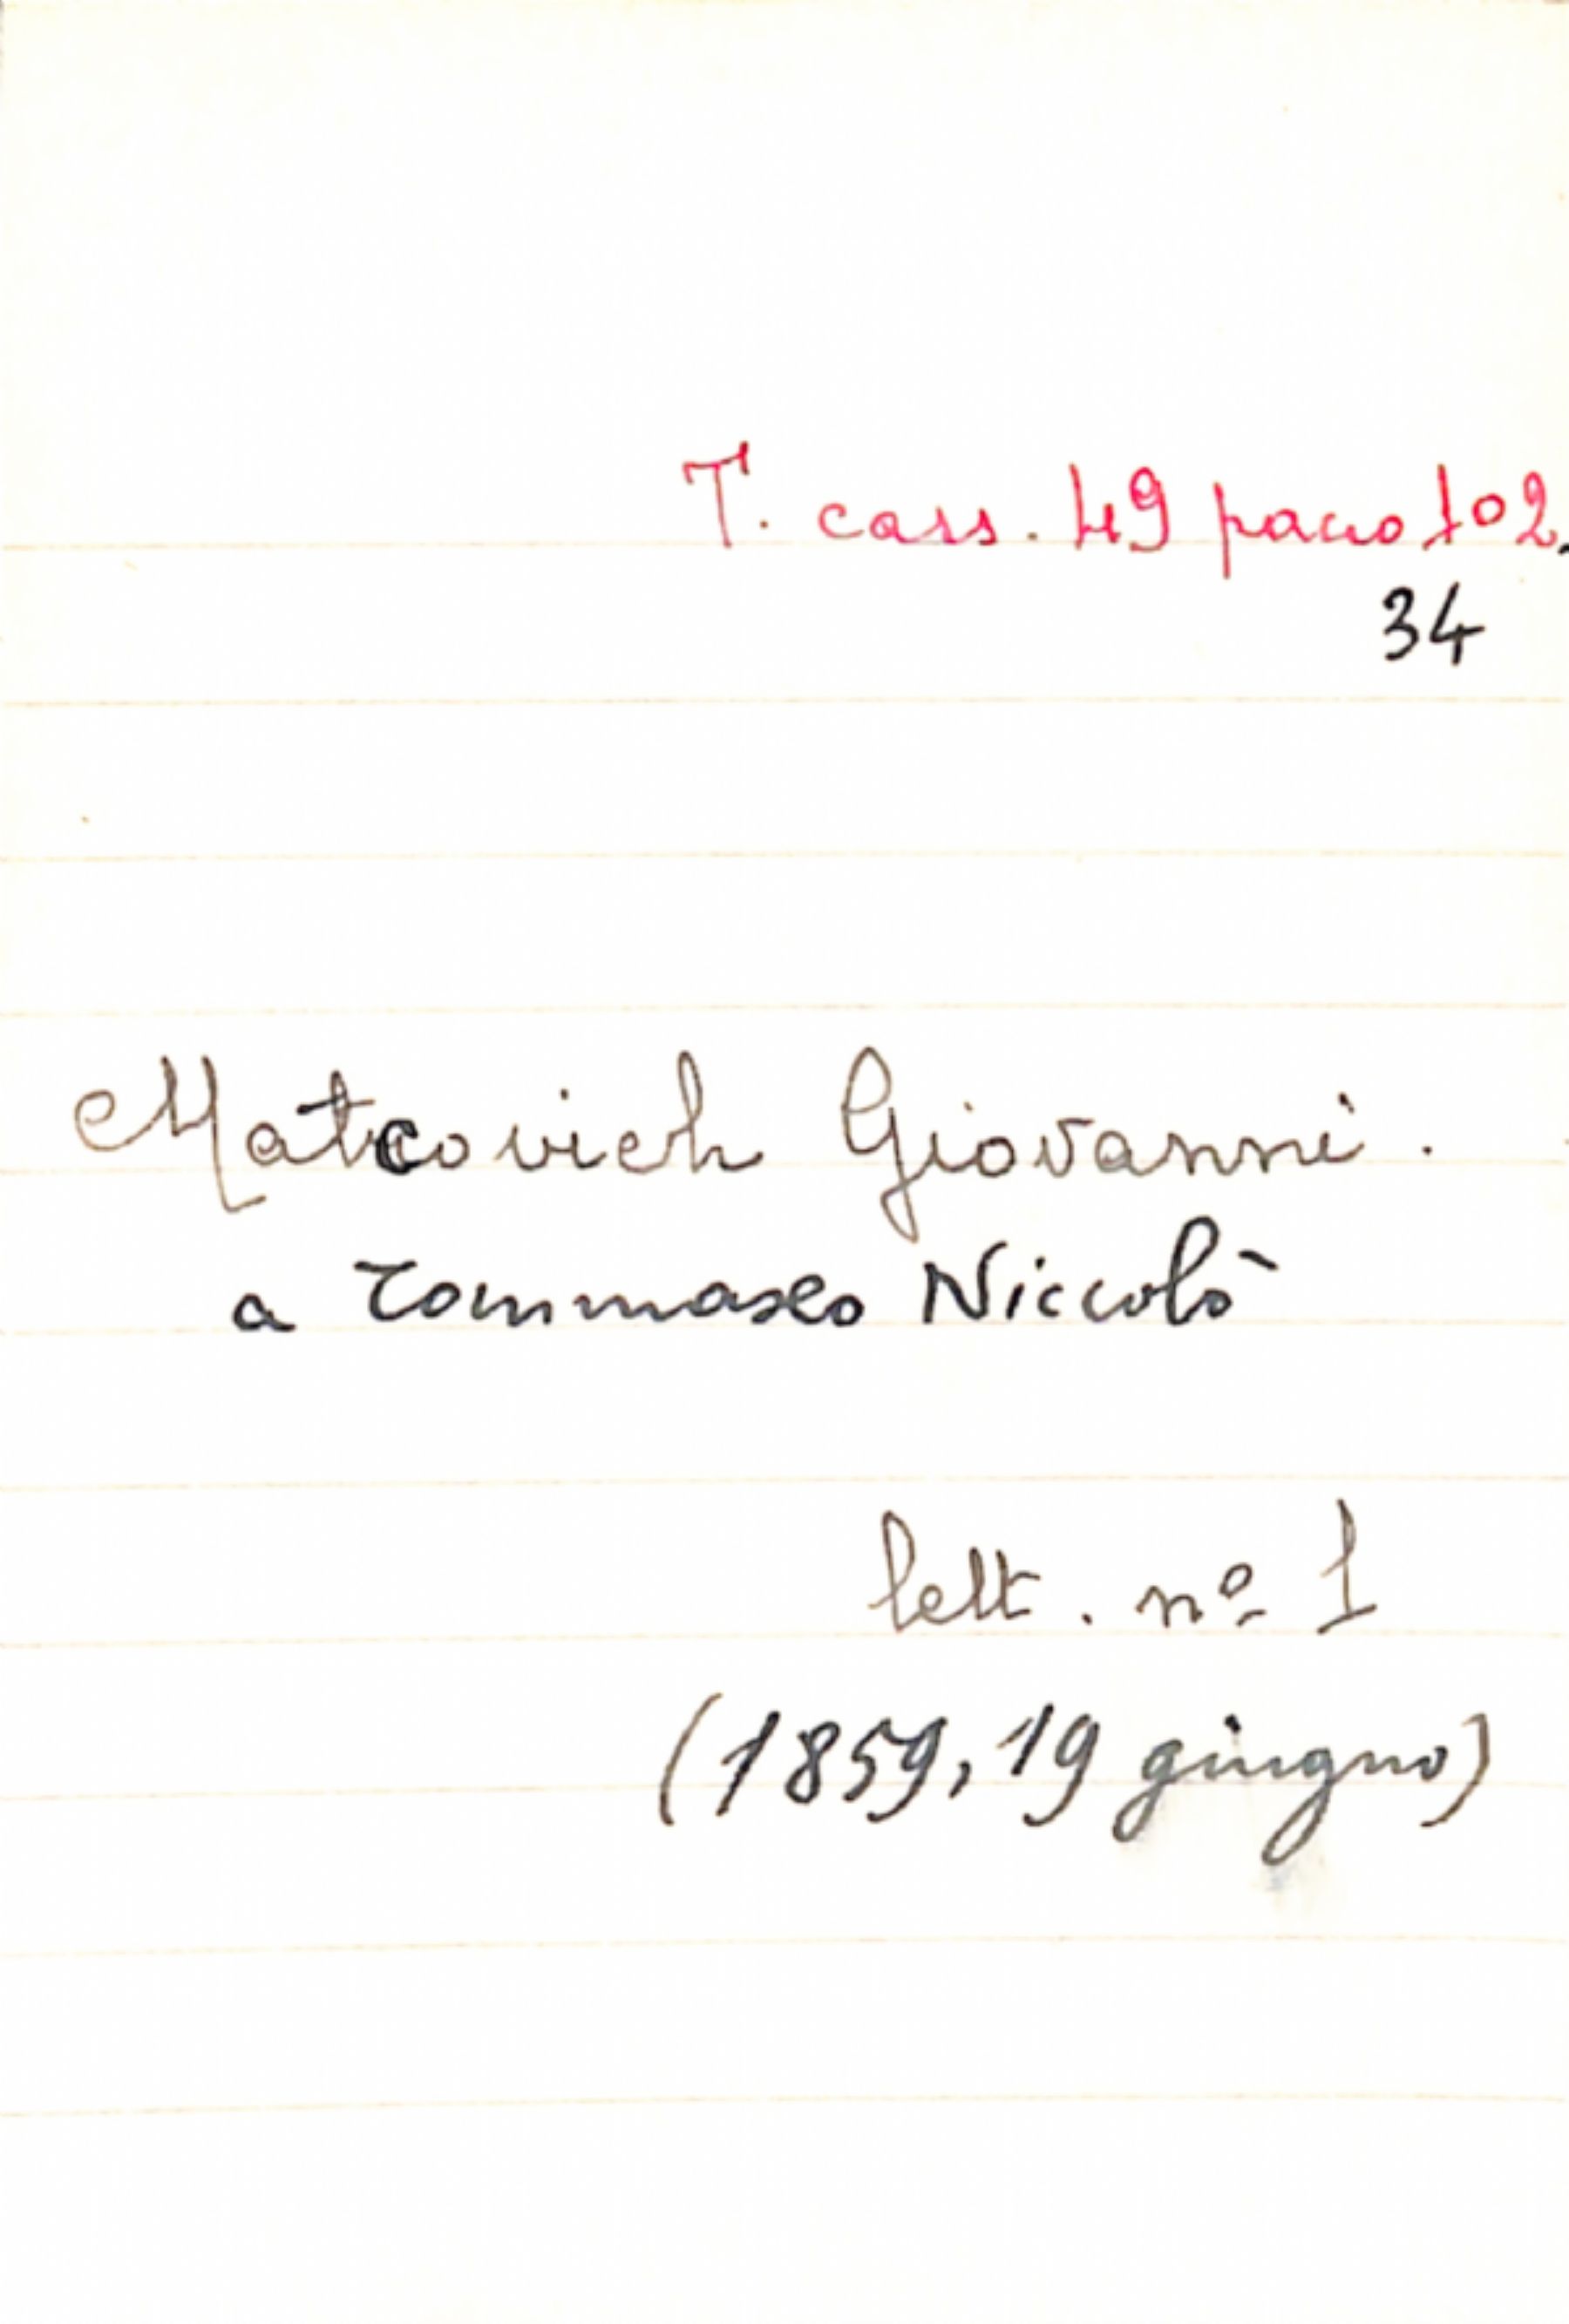 T. cass. 49 pacco 102.
34
Matcovich Giovanni.
a Tommaseo Niccolò
lett. nº 1
(1859, 19 giugno)